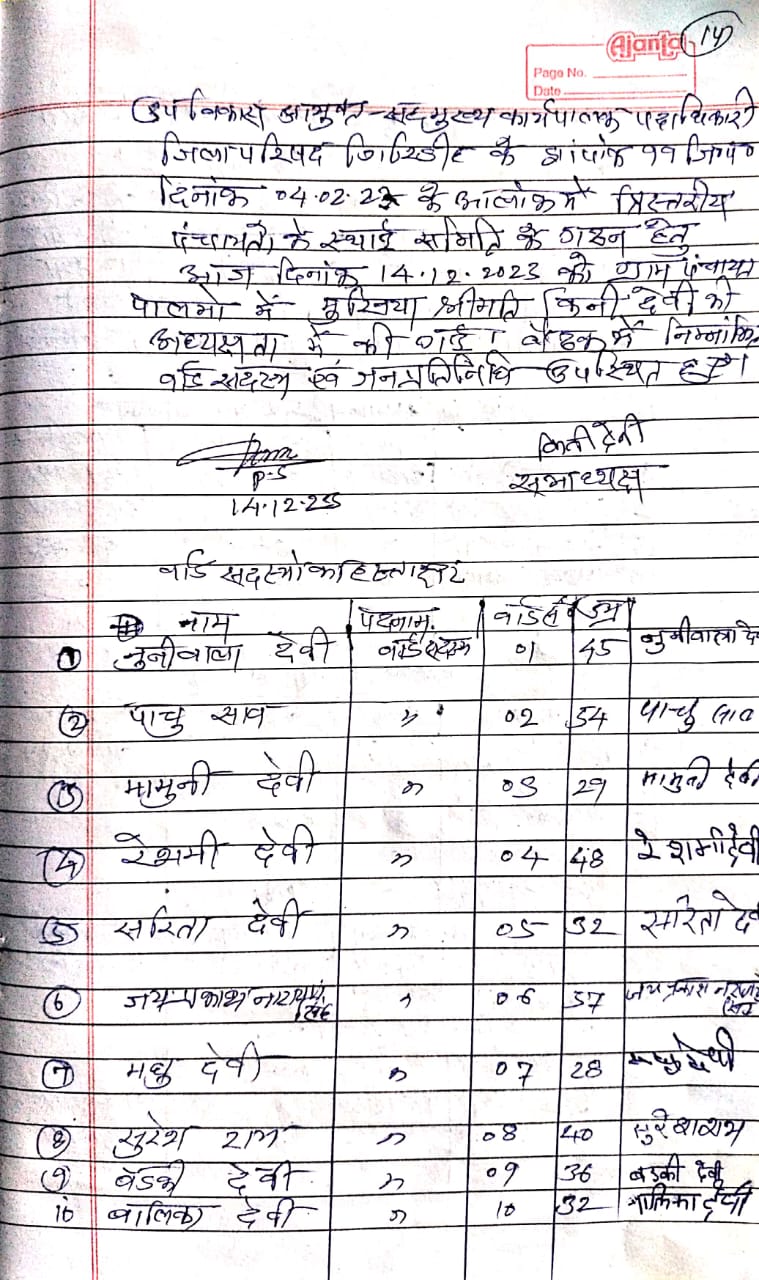 Ajanta 14
Page No.
Date
उप विकास आयुक्त-सह मुख्य कार्यपालक पदाधिकारी
जिला परिषद गिरिडीह के ज्ञापांक 99 जि०प०
दिनांक 04.02.23 के आलोक में त्रिस्तरीय
पंचायतों के स्थाई समिति के गठन हेतु
आज दिनांक 14.12.2023 को ग्राम पंचायत
पालमो में मुखिया श्रीमति किनी देवी की
अध्यक्षता में की गई। बैठक में निम्नांकित
वार्ड सदस्य एवं जनप्रतिनिधि उपस्थित हुए।
किनी देवी
P.S सभाध्यक्ष
14.12.23
वार्ड सदस्यो का हस्ताक्षर
नाम पदनाम. वार्ड सं उम्र
1 नुनीबाला देवी वार्ड सदस्य 01 45 नुनीबाला दे
2 पाचु साव " 02 54 पाचु साव
3 मामुनी देवी " 03 29 मामुनी देवी
4 रेशमी देवी " 04 48 रेशमी देवी
5 सरिता देवी " 05 32 सरिता दे
6 जयप्रकाश नारायण सिंह " 06 37 जय प्रकाश नारायण
7 मधु देवी " 07 28 मधु देवी
8 सुरेश राम " 08 40 सुरेश राम
9 बड़की देवी " 09 36 बड़की देवी
10 बालिका देवी " 10 32 बालिका देवी